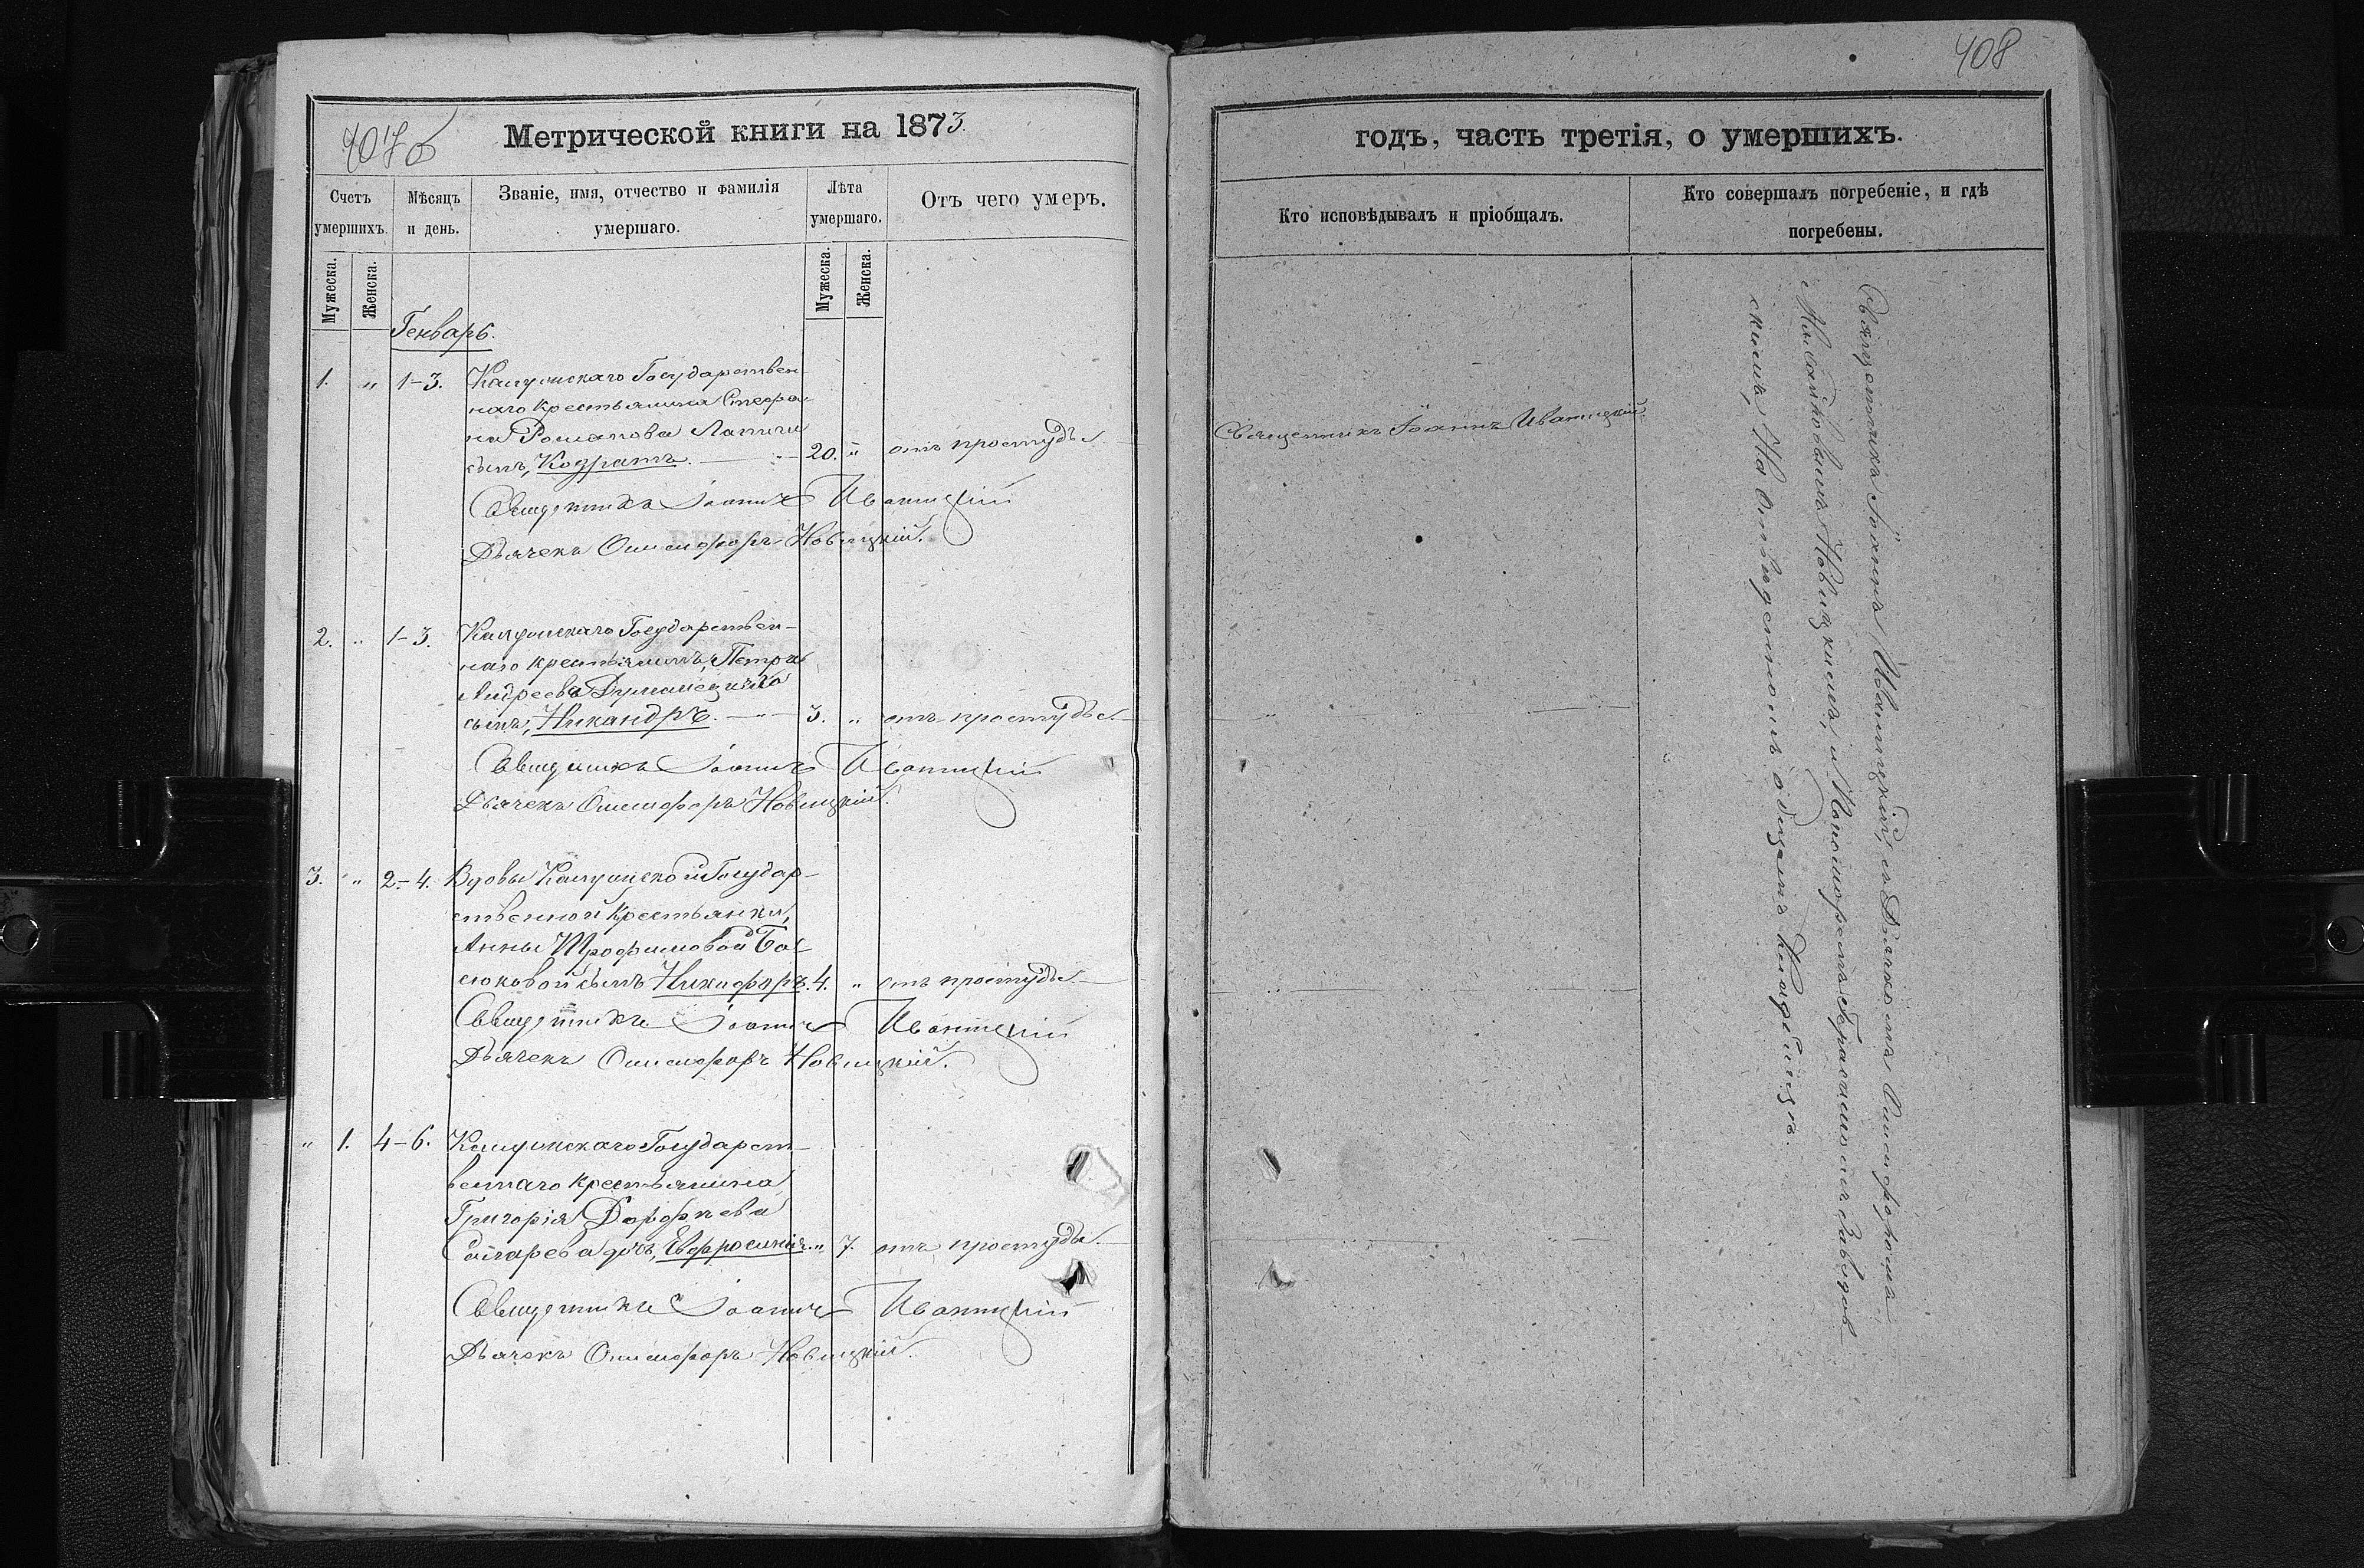 407б
Метрической книги на 1873.
Счетъ умершихъ.
Мѣсяцъ и день.
Званіе, имя, отчество и фамилія умершаго.
Лѣта умершаго.
Отъ чего умеръ.
Мужеска.
Женска.
Мужеска.
Женска.
Генварь.
1. „ 1-3. Государствен
наго крестьянина Стефа
на Романова
сынъ, Кодратъ. 20. „ отъ простуды.
Священникъ Іоаннъ Иваницкій
Дьячекъ Онисифоръ Новицкій.
2. „ 1-3. Государствен-
наго крестьянина, Петра
Андреева
сынъ, Никандръ. 3. „ отъ простуды.
Священникъ Іоаннъ Иваницкій
Дьячекъ Онисифоръ Новицкій.
3. „ 2-4. Вдовы Государ-
ственной крестьянки,
Анны Трофимовой Ба-
сюковой сынъ Никифоръ. 4. „ отъ простуды.
Священникъ Іоаннъ Иваницкій
Дьячекъ Онисифоръ Новицкій.
„ 1. 4-6. Государст-
веннаго крестьянина
Григорія Дорофеева
дочь, Евфросинія. „ 7. отъ простуды.
Священникъ Іоаннъ Иваницкій
Дьячекъ Онисифоръ Новицкій.
408
годъ, часть третія, о умершихъ.
Кто исповѣдывалъ и пріобщалъ.
Кто совершалъ погребеніе, и гдѣ
погребены.
Священникъ Іоаннъ Иваницкій.
Священникъ Іоаннъ Иваницкій, съ Дьячкомъ Онисифоромъ
Новицкимъ, и Пономаремъ Герасимомъ Завадов
скимъ, На отведенномъ общемъ кладбищѣ.